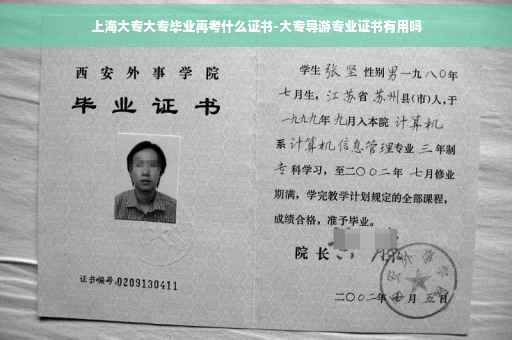 上海大专大专毕业再考什么证书-大专导游专业证书有用吗
西安外事学院
毕业证书
证书编号:0209130411
学生 张坚 性别 男 一九八〇年
七月生，江苏省苏州县(市)人，于
一九九九年九月入本院 计算机
系 计算机信息管理专业 三年制
专科学习，至二〇〇二年七月修业
期满，学完教学计划规定的全部课程，
成绩合格，准予毕业。
院长
二〇〇二年 月五日